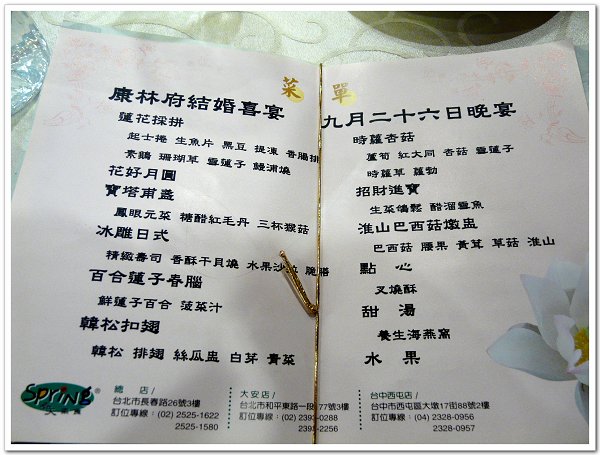 菜 單
康林府結婚喜宴
蓮花採拼
起士捲 生魚片 黑豆 提凍 香腸排
素鵝 珊瑚草 雪蓮子 鰻浦燒
花好月圓
寶塔甫盞
鳳眼元菜 糖醋紅毛丹 三杯猴菇
冰雕日式
精緻壽司 香酥干貝燒 水果沙拉 脆膳
百合蓮子香腦
鮮蓮子百合 菠菜汁
韓松扣翅
韓松 排翅 絲瓜盅 白芽 青菜
九月二十六日晚宴
時蘿杏菇
蘆筍 紅大同 杏菇 雪蓮子
時蘿草 蘿勃
招財進寶
生菜鴿鬆 醋溜雪魚
淮山巴西菇燉盅
巴西菇 腰果 黃茸 草菇 淮山
點 心
叉燒酥
甜 湯
養生海燕窩
水 果
Spring ®
總 店 /
台北市長春路26號3樓
訂位專線：(02) 2525-1622
2525-1580
大安店 /
台北市和平東路一段 77號3樓
訂位專線：(02) 2393-0288
2393-2256
台中西屯店 /
台中市西屯區大墩17街88號2樓
訂位專線：(04) 2328-0956
2328-0957